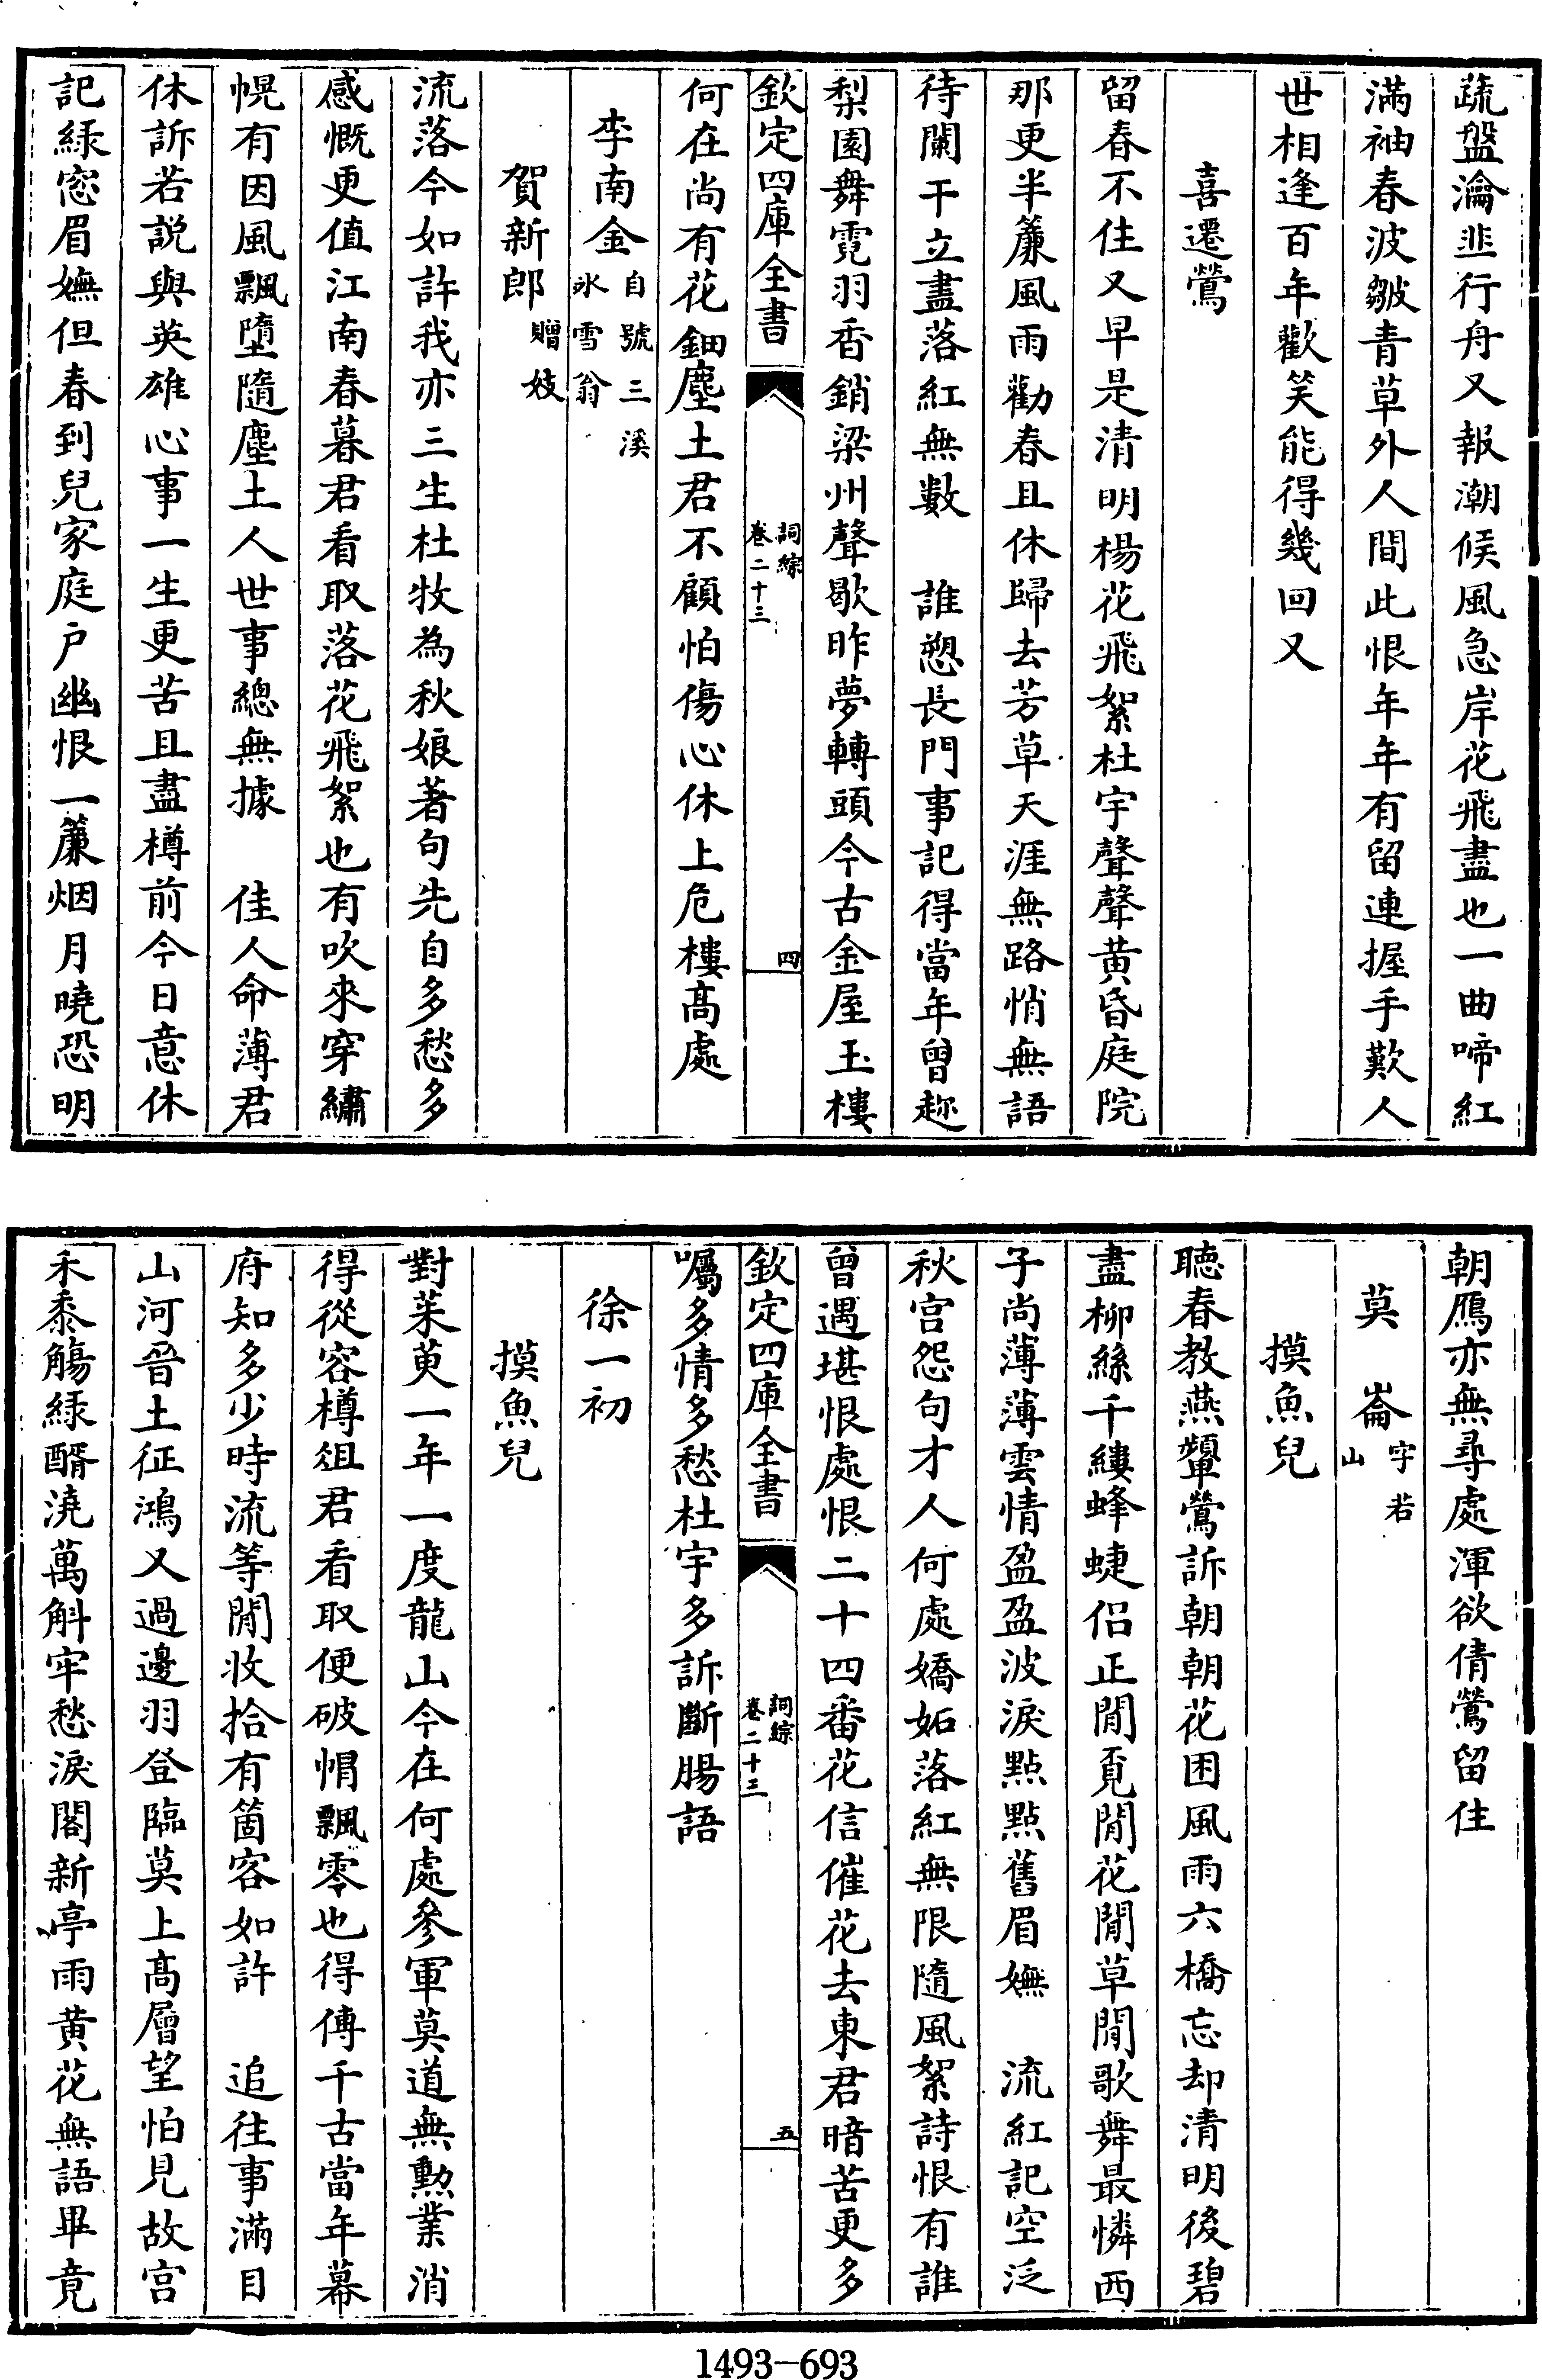 蔬盤瀹韭行舟又報潮候風急岸花飛盡也一曲啼紅
滿袖春波皺青草外人間此恨年年有留連握手歎人
世相逢百年歡笑能得幾回又
喜遷鶯
留春不住又早是清明楊花飛絮杜宇聲聲黃昏庭院
那更半簾風雨勸春且休歸去芳草天涯無路悄無語
待闌干立盡落紅無數　誰愬長門事記得當年曾趂
梨園舞霓羽香銷梁州聲歇昨夢轉頭今古金屋玉樓
欽定四庫全書
詞綜
卷二十三
四
何在尚有花鈿塵土君不顧怕傷心休上危樓髙處
李南金自號三溪
氷雪翁
賀新郎贈妓
流落今如許我亦三生杜牧為秋娘著句先自多愁多
感慨更值江南春暮君看取落花飛絮也有吹來穿繡
幌有因風飄墮隨塵土人世事總無據　佳人命薄君
休訴若説與英雄心事一生更苦且盡樽前今日意休
記緑窓眉嫵但春到兒家庭户幽恨一簾烟月曉恐明
朝鴈亦無尋處渾欲倩鶯留住
莫崙字若
山
摸魚兒
聽春教燕顰鶯訴朝朝花困風雨六橋忘却清明後碧
盡柳絲千縷蜂蜨侣正閒覓閒花閒草閒歌舞最憐西
子尚薄薄雲情盈盈波淚點點舊眉嫵　流紅記空泛
秋宫怨句才人何處嬌妬落紅無限隨風絮詩恨有誰
曾遇堪恨處恨二十四番花信催花去東君暗苦更多
欽定四庫全書
詞綜
卷二十三
五
囑多情多愁杜宇多訴斷腸語
徐一初
摸魚兒
對茱萸一年一度龍山今在何處參軍莫道無勲業消
得從容樽俎君看取便破帽飄零也得傳千古當年幕
府知多少時流等閒收拾有箇客如許　追往事滿目
山河晉土征鴻又過邊羽登臨莫上髙層望怕見故宫
禾黍觴緑醑澆萬斛牢愁淚閣新亭雨黄花無語畢竟
1493—693